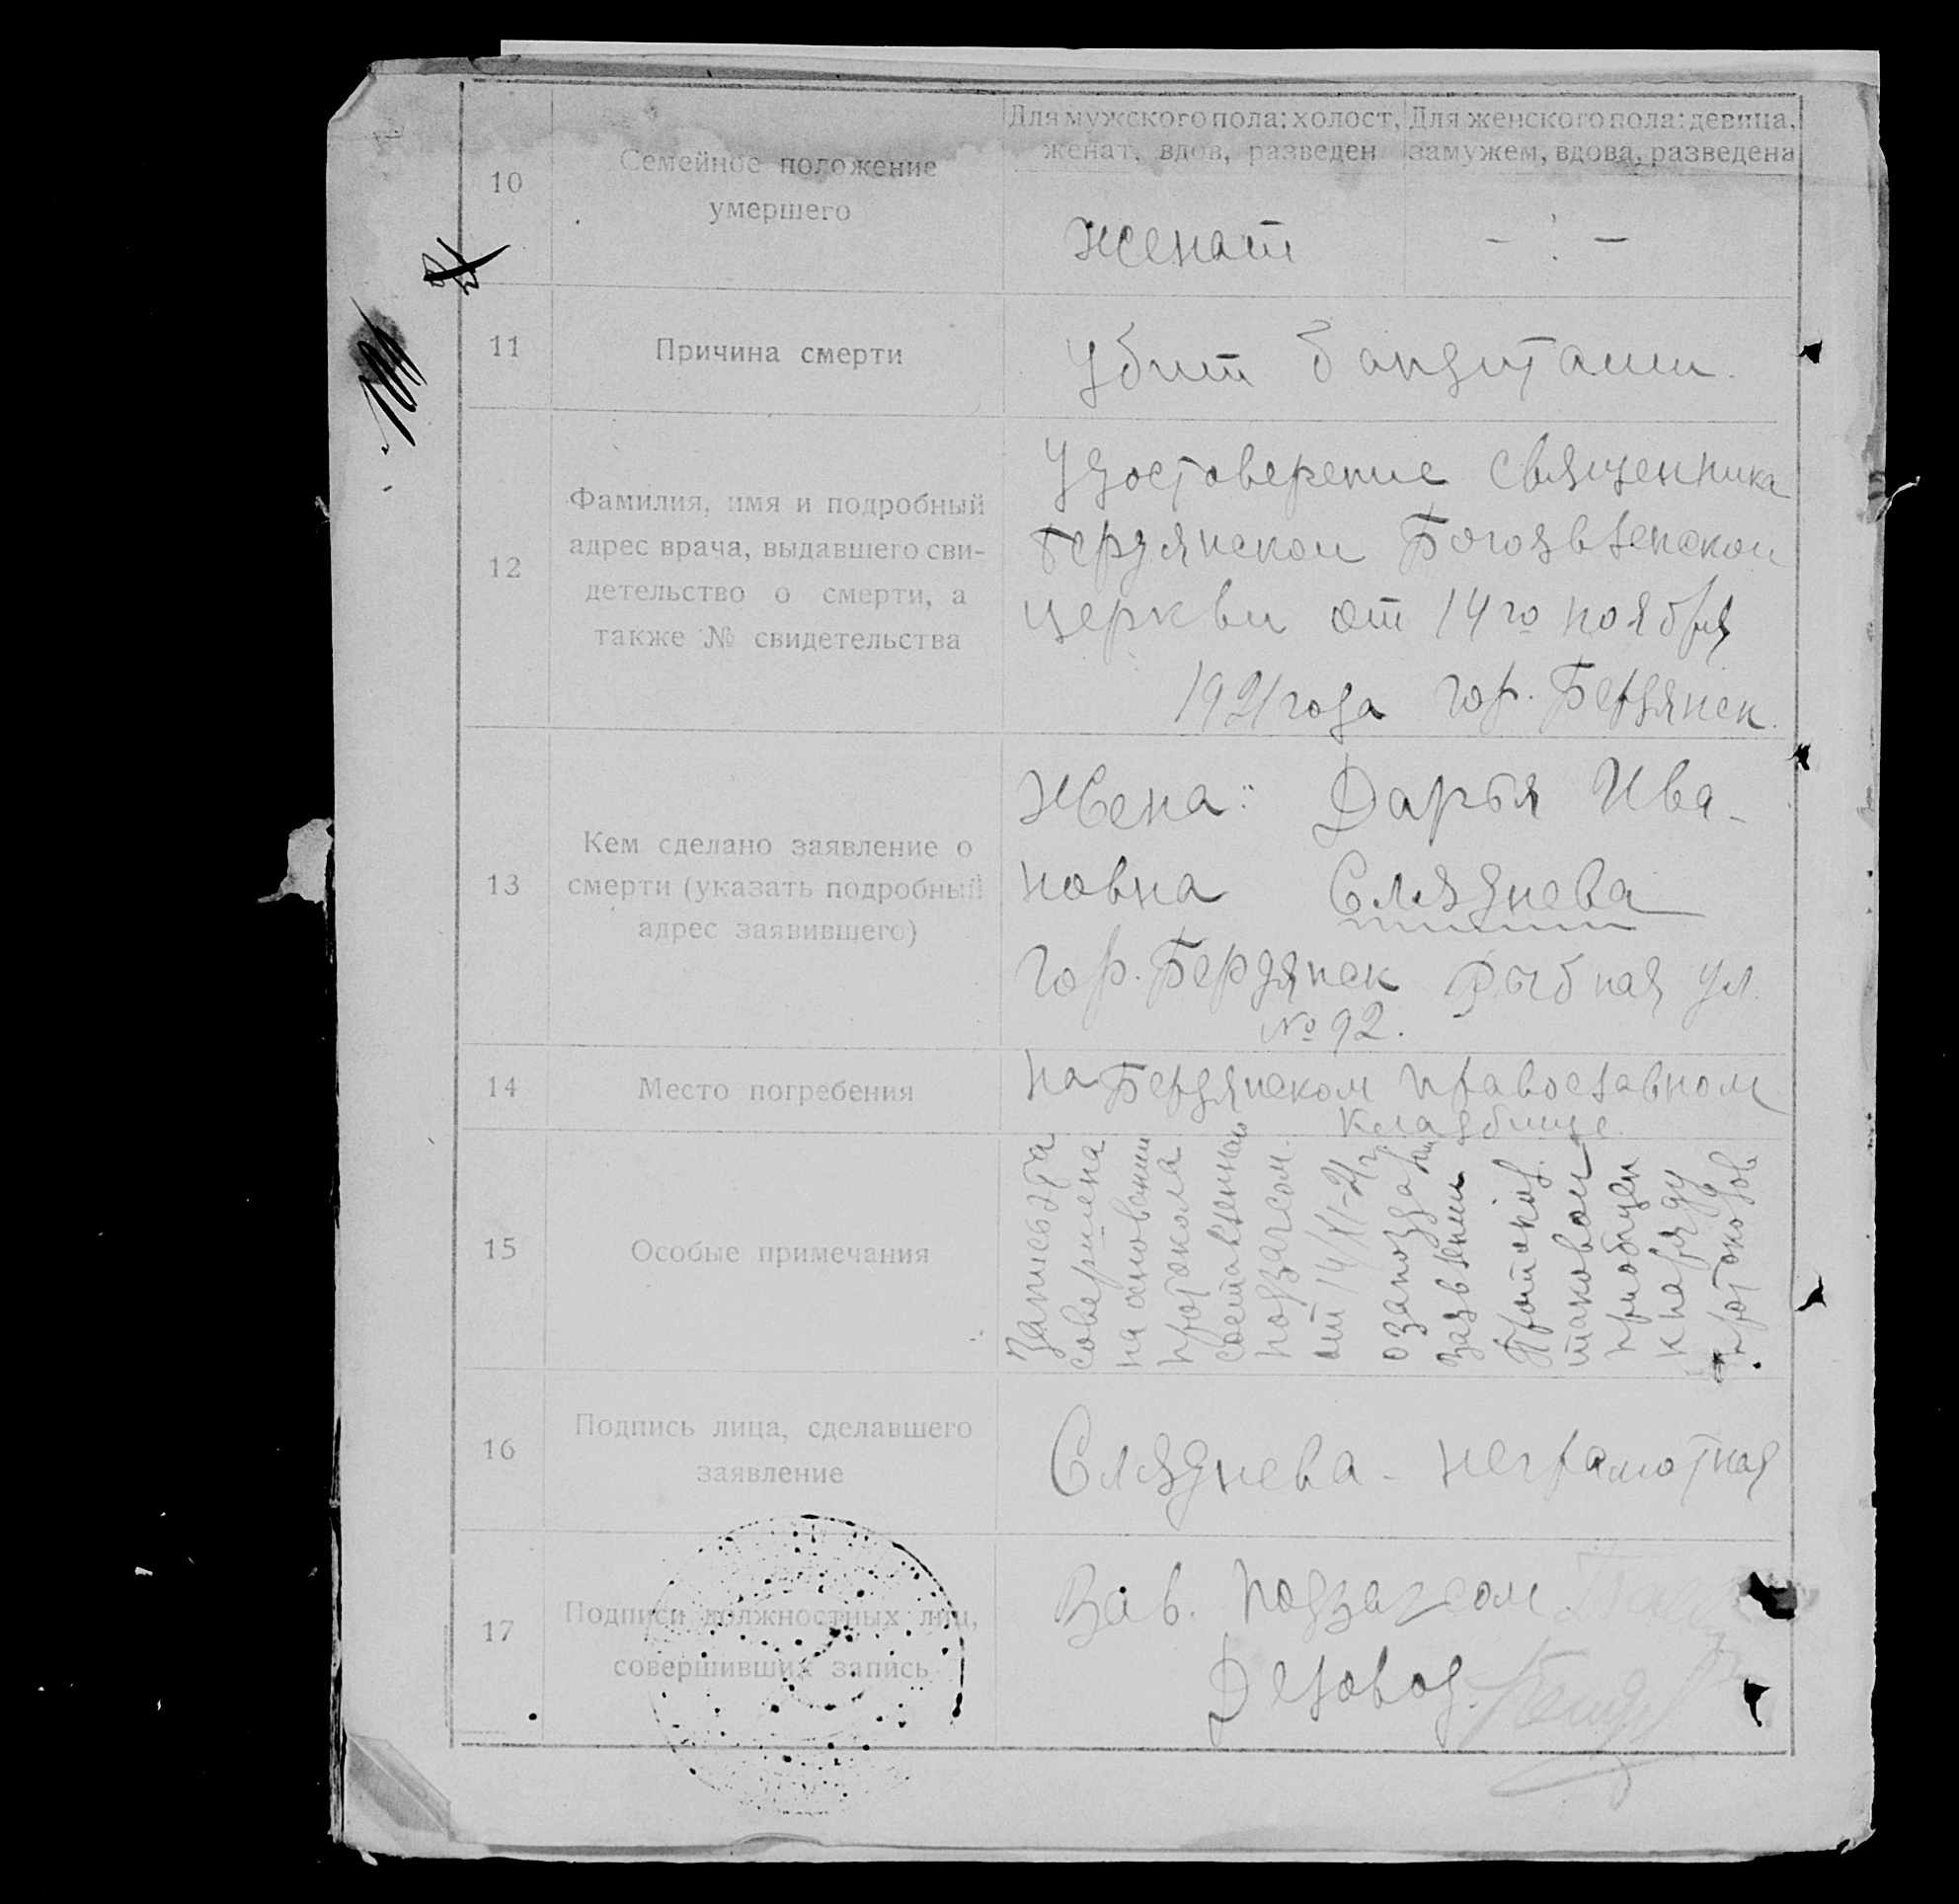 10
Семейное положение
умершего
Для мужского пола: холост,
женат, вдов, разведен
Для женского пола: девица,
замужем, вдова, разведена
Женат
- : -
11
Причина смерти
Убит бандитами.
12
Фамилия, имя и подробный
адрес врача, выдавшего сви-
детельство о смерти, а
также № свидетельства
Удостоверение священника
Бердянской Богоявленской
церкви от 14го ноября
1921 года гор. Бердянск.
13
Кем сделано заявление о
смерти (указать подробный
адрес заявившего)
Жена: Дарья Ива-
новна Слязднева
гор. Бердянск Рыбная ул.
№ 92.
14
Место погребения
На Бердянском православном
кладбище.
15
Особые примечания
Запись эта
совершена
на основании
протокола
составленного
подзагсом
от 14/XI-21г.
о запоздалом
заявлении
Протокол.
таковой
приобщен
к наряду
протоколов.
16
Подпись лица, сделавшего
заявление
Слязднева - неграмотная
17
Подписи должностных лиц,
совершивших запись
Зав. подзагсом
Деловод.